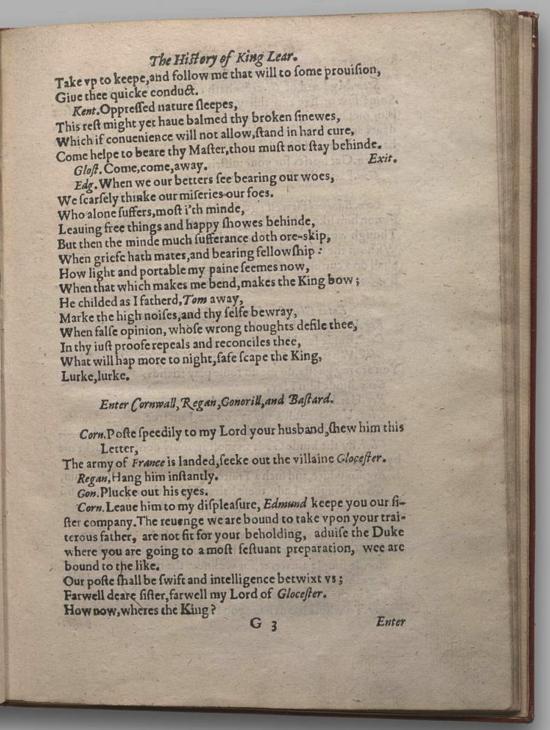 The Hiſtory of King Lear.
Take vp to keepe,and follow me that will to ſome prouiſion,
Giue thee quicke conduct.
Kent.Oppreſſed nature ſleepes,
This reſt might yet haue balmed thy broken ſinewes,
Which if conuenience will not allow,ſtand in hard cure,
Come helpe to beare thy Maſter,thou muſt not ſtay behinde.
Gloſt.Come,come,away. Exit.
Edg.When we our betters ſee bearing our woes,
We ſcarſely thinke our miſeries our foes.
Who alone ſuffers,moſt i'th minde,
Leauing free things and happy ſhowes behinde,
But then the minde much ſufferance doth ore-skip,
When griefe hath mates,and bearing fellowſhip :
How light and portable my paine ſeemes now,
When that which makes me bend,makes the King bow ;
He childed as I fatherd,Tom away,
Marke the high noiſes,and thy ſelfe bewray,
When falſe opinion, whoſe wrong thoughts defile thee,
In thy iuſt proofe repeals and reconciles thee,
What will hap more to night,ſafe ſcape the King,
Lurke,lurke.
Enter Cornwall,Regan,Gonorill,and Baſtard.
Corn.Poſte ſpeedily to my Lord your husband,ſhew him this
Letter,
The army of France is landed,ſeeke out the villaine Gloceſter.
Regan.Hang him inſtantly.
Gon.Plucke out his eyes.
Corn.Leaue him to my diſpleaſure, Edmund keepe you our ſi-
ſter company.The reuenge we are bound to take vpon your trai-
terous father, are not fit for your beholding, aduiſe the Duke
where you are going to a moſt feſtuant preparation, wee are
bound to the like.
Our poſte ſhall be ſwift and intelligence betwixt vs ;
Farwell deare ſiſter,farwell my Lord of Gloceſter.
How now,wheres the King ?
G 3 Enter